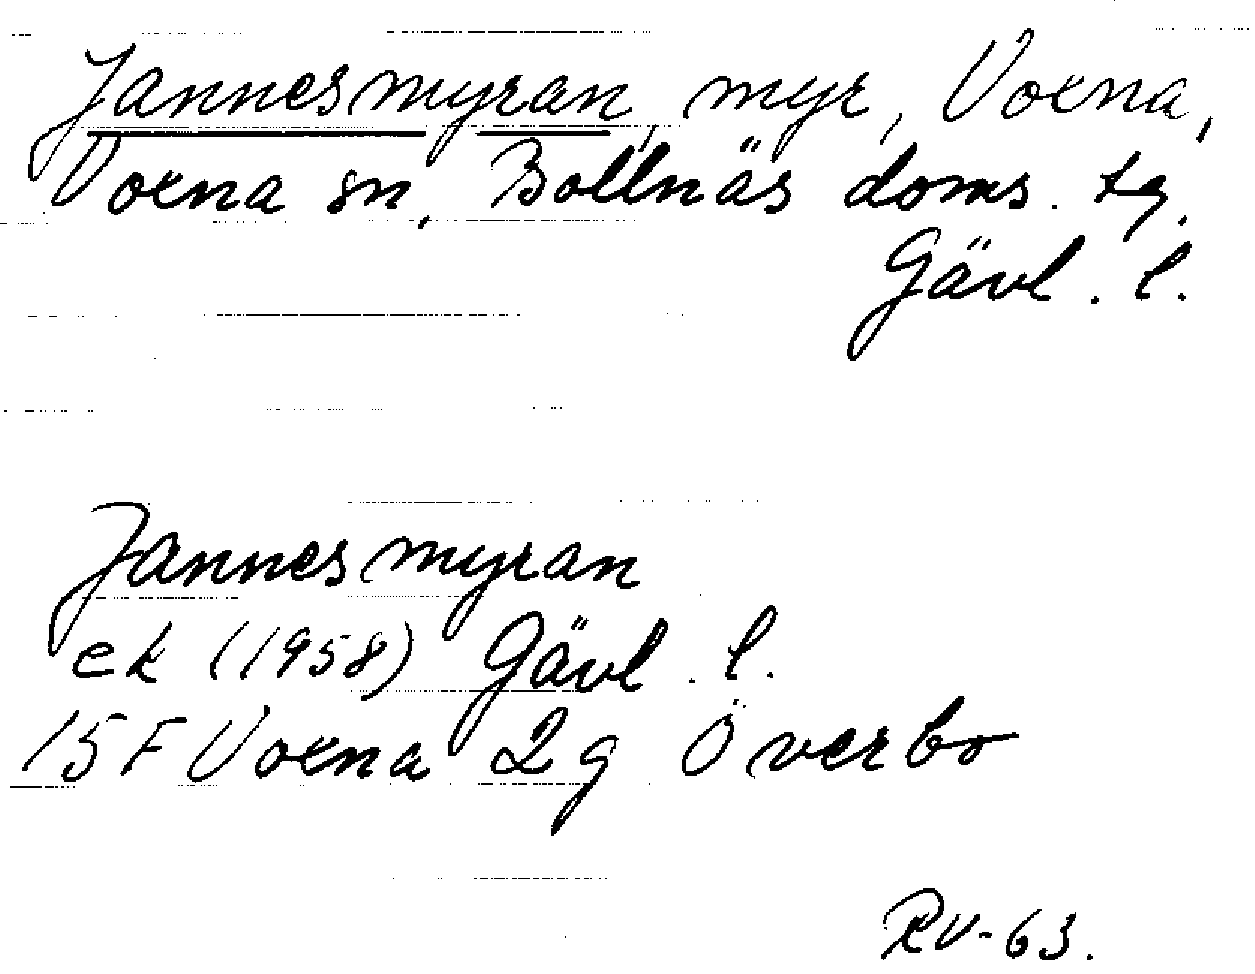 Jannesmyran, myr, Voxna,
Voxna sn, Bollnäs doms. tg.
Gävl. l.
Jannesmyran
ek (1958) Gävl. l.
15F Voxna 2g Överbo
RV-63.